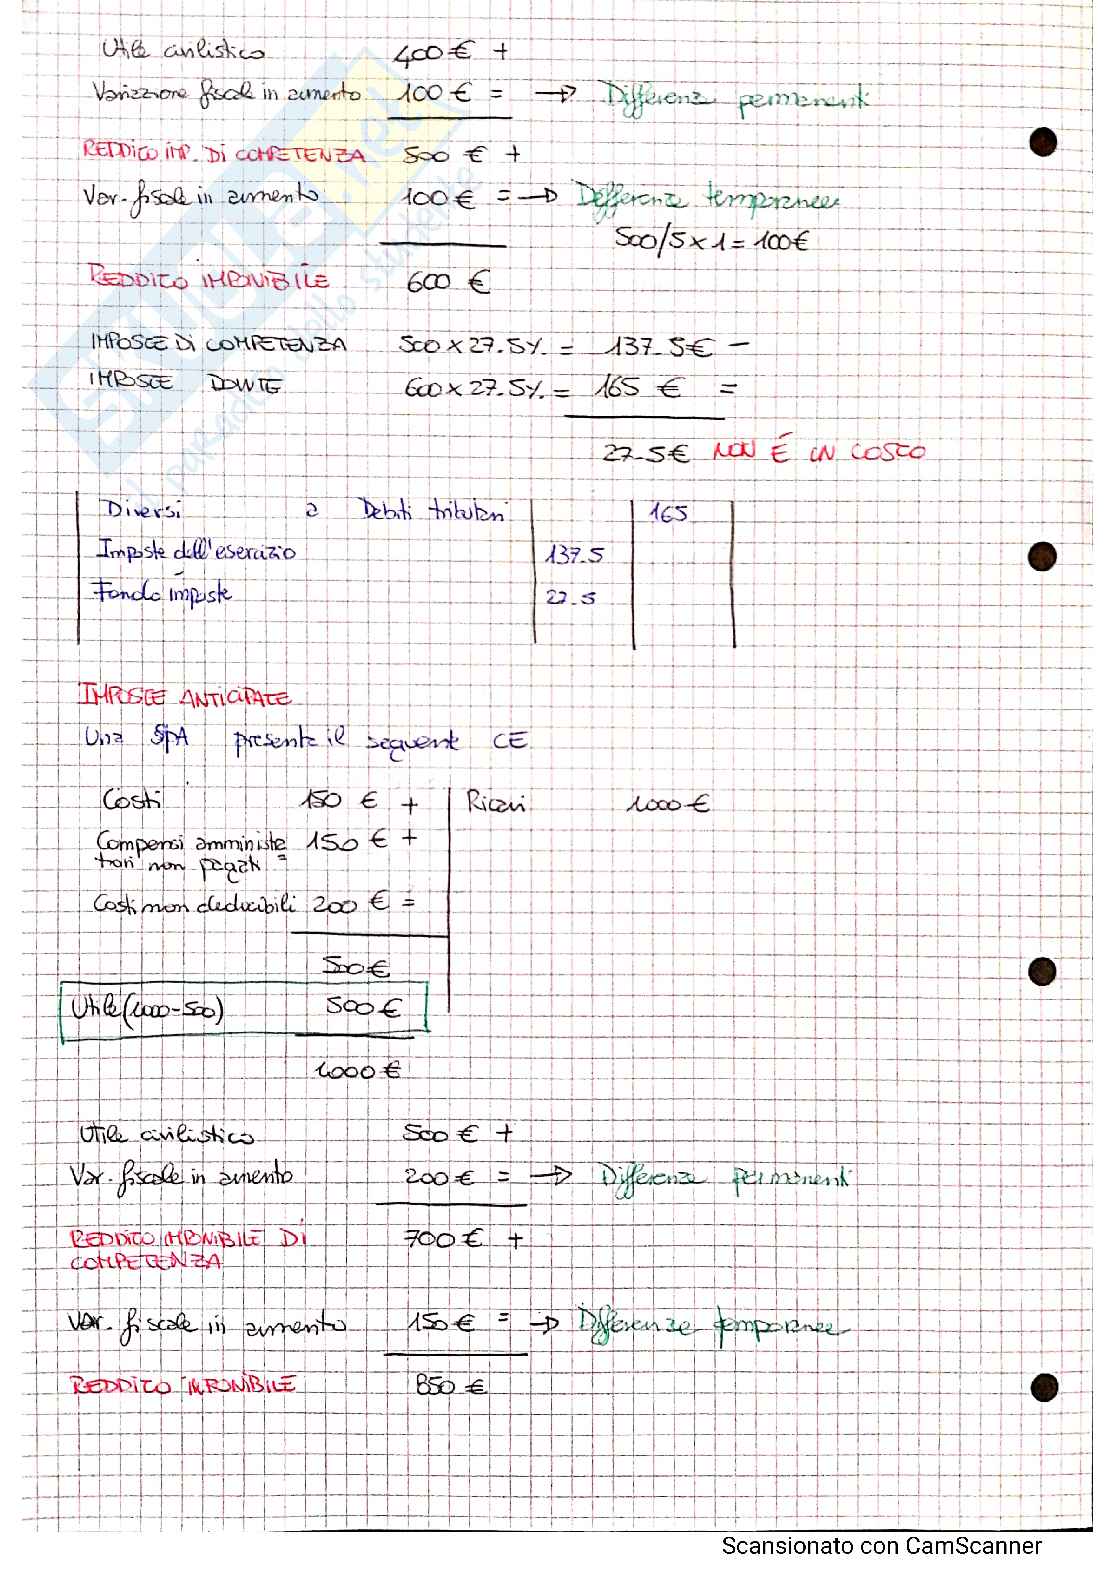 Utile civilistico 400 € +
Variazione fiscale in aumento 100 € = → Differenze permanenti
REDDITO IMP. DI COMPETENZA 500 € +
Var. fiscale in aumento 100 € = → Differenze temporanee
500/5 x 1 = 100 €
REDDITO IMPONIBILE 600 €
IMPOSTE DI COMPETENZA 500 x 27.5% = 137.5 € -
IMPOSTE DOVUTE 600 x 27.5% = 165 € =
27.5 € NON É UN COSTO
Diversi a Debiti tributari 165
Imposte dell'esercizio 137.5
Fondo imposte 27.5
IMPOSTE ANTICIPATE
Una SPA presenta il seguente CE
Costi 150 € + Ricavi 1000 €
Compensi amministra 150 € +
tori non pagati =
Costi non deducibili 200 € =
500 €
Utile (1000-500) 500 €
1000 €
Utile civilistico 500 € +
Var. fiscale in aumento 200 € = → Differenze permanenti
REDDITO IMPONIBILE DI 700 € +
COMPETENZA
Var. fiscale in aumento 150 € = → Differenze temporanee
REDDITO IMPONIBILE 850 €
Scansionato con CamScanner